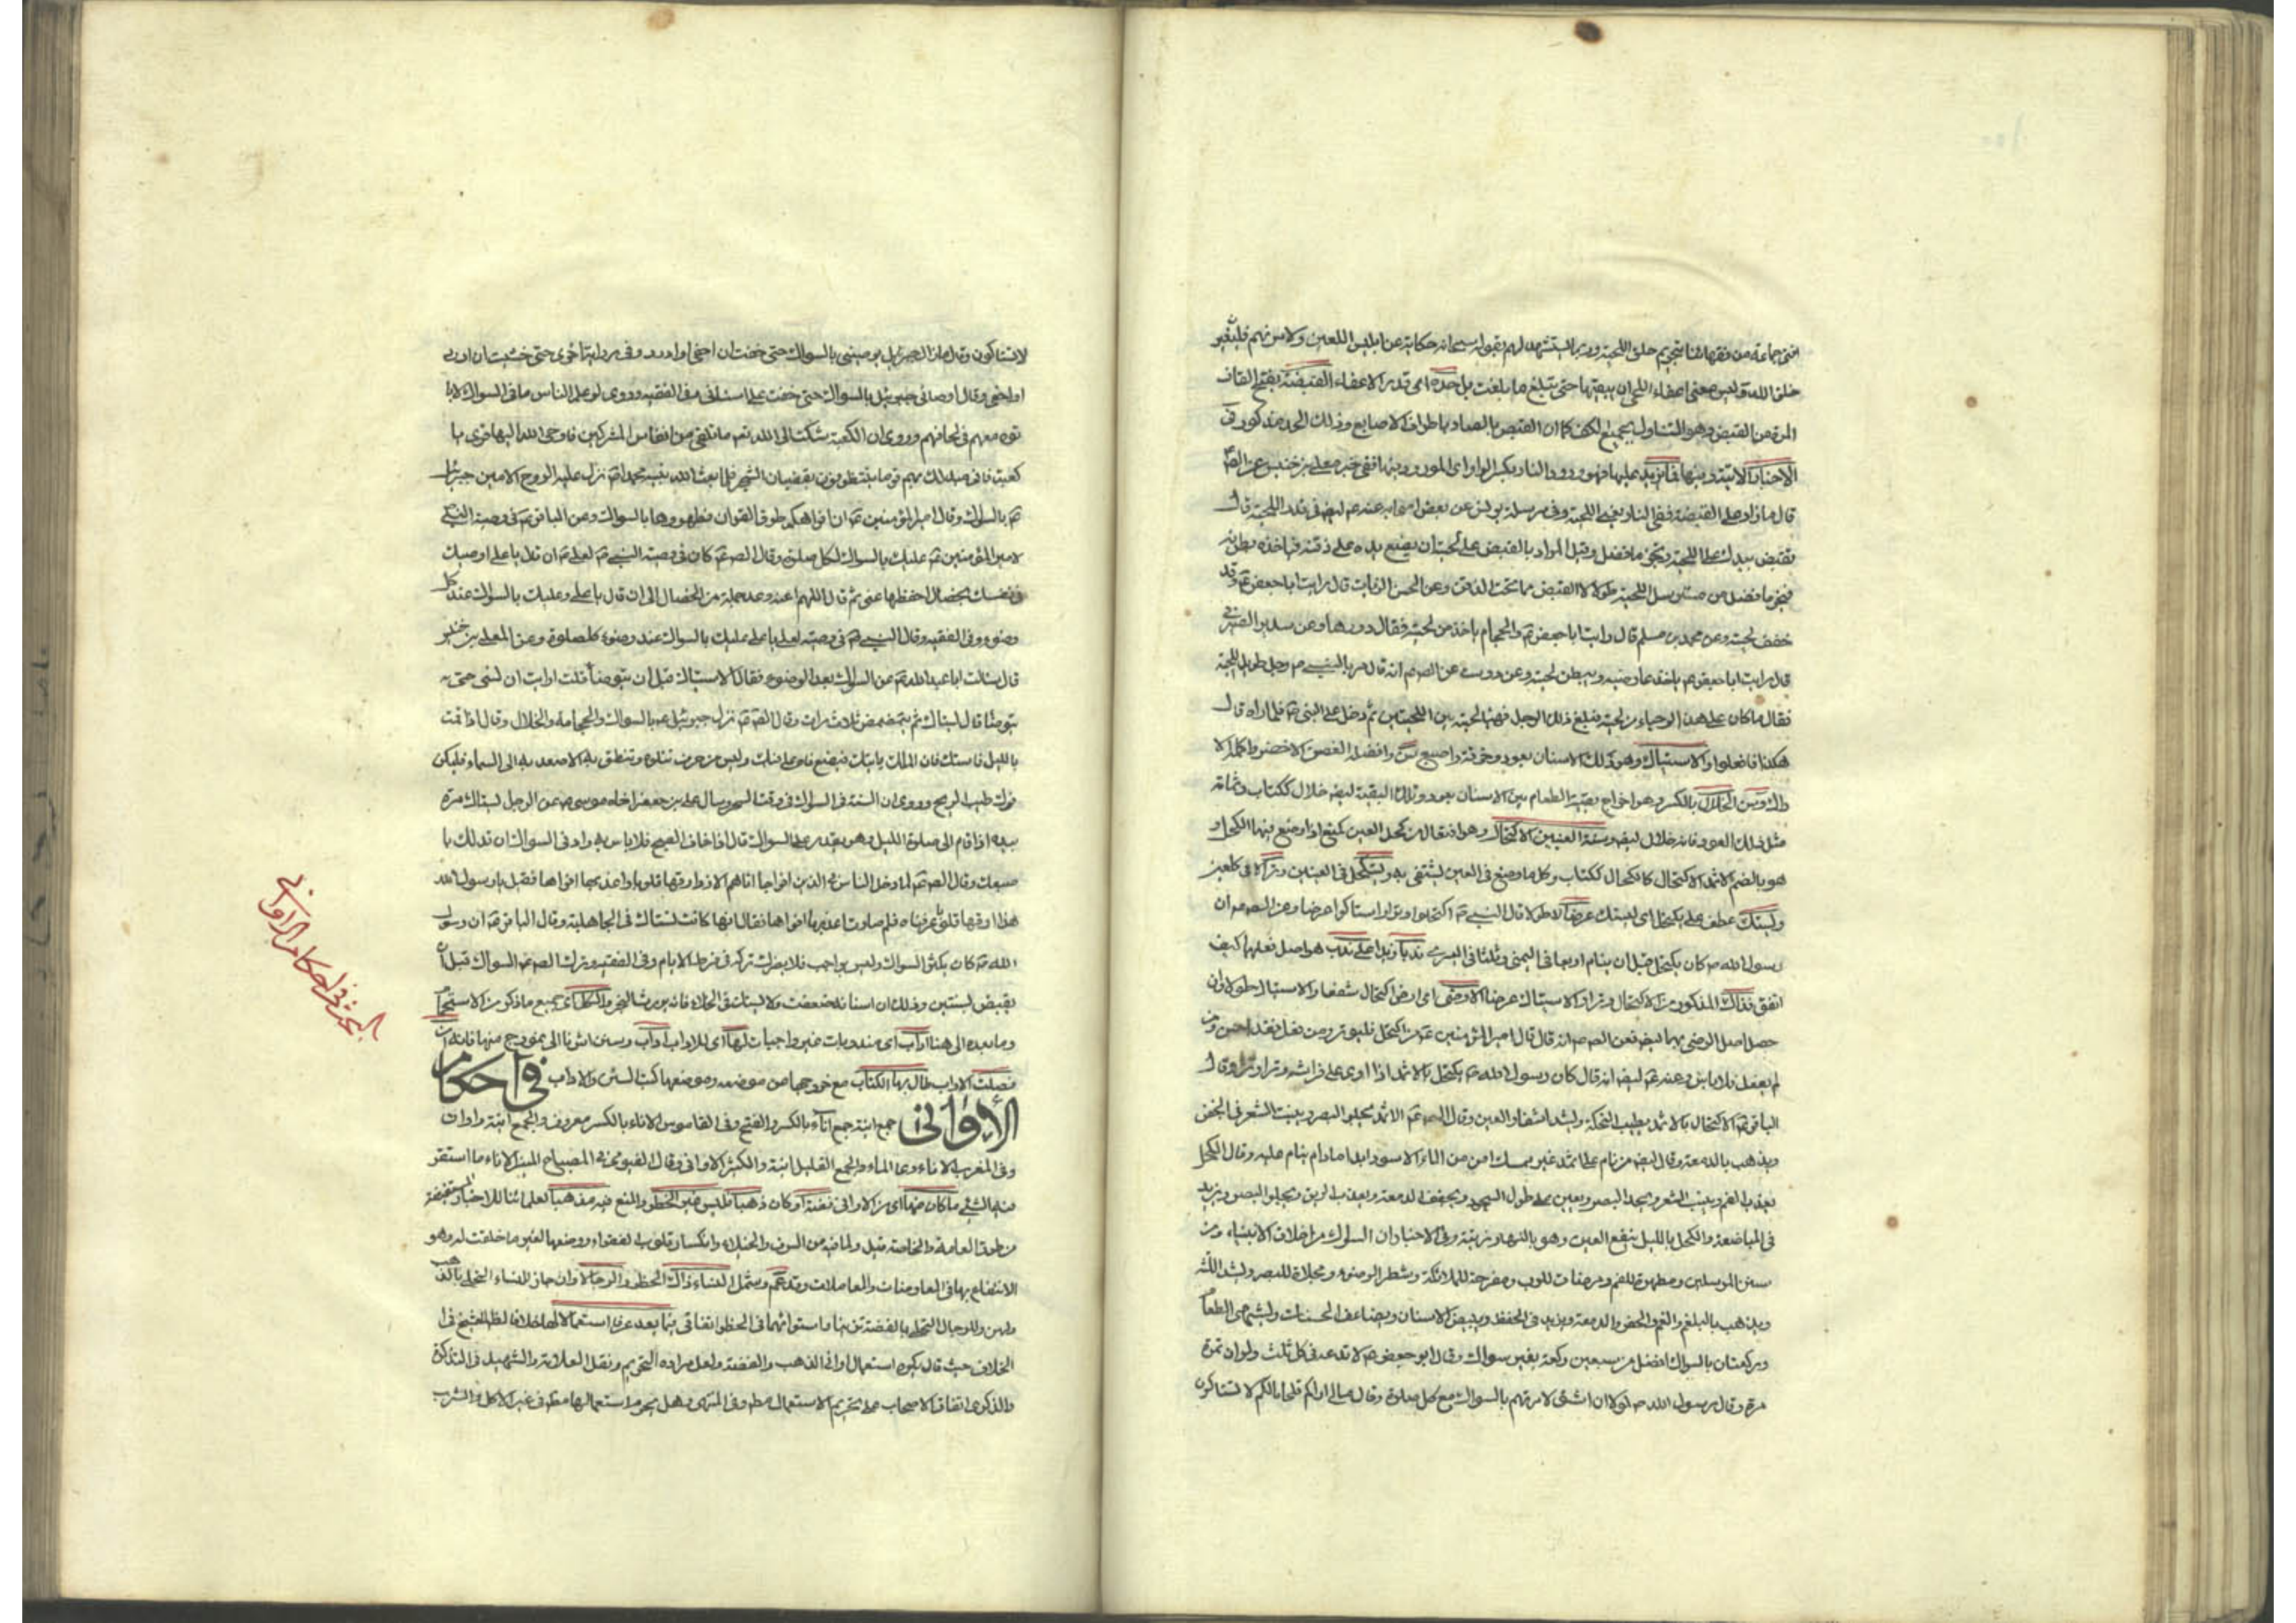 افتى جماعة من فقهائنا بتحريم حلق اللحية وربما يستشهد لهم بقوله سبحانه حكاية عن ابليس اللعين ولامرنهم فليغيرن
خلق الله وليس معنى اعفاء اللحى ان يبقيها حتى تبلغ ما بلغت بل حده اى قدر الاعفاء القبضة بفتح القاف
المرة من القبض وهو التناول بجميع الكف كما ان القبص بالصاد بأطراف الاصابع وذلك الحد مذكور فى
الاخبار الاتية ومنها فما يزيد عليها فهو ورود النار بكسر الواو اى المورود ففى خبر معلى بن خنيس عن الص
قال ما زاد على القبضة ففى النار يعنى اللحية وفى مرسلة يونس عن بعض اصحابه عنه ع ايضا فى قدر اللحية قال
تقبض بيدك على اللحية وتجز ما فضل وقيل المراد بالقبض على لحيته ان يضع يده على ذقنه فياخذه بطرفيه
فيجز ما فضل من مسترسل اللحية طولا لا القبض مما تحت الذقن وعن الحسن الزيات قال رايت ابا جعفر ع وقد
خفف لحيته وعن محمد بن مسلم قال رايت ابا جعفر ع والحجام ياخذ من لحيته فقال دورها وعن سدير الصيرفى
قال رايت ابا جعفر ع ياخذ عارضيه ويبطن لحيته وعن درست عن الص ع انه قال مر بالنبى ص رجل طويل اللحية
فقال ما كان على هذا لو هياء من لحيته فبلغ ذلك الرجل فهيا لحيته بين اللحيتين ثم دخل على النبى ص فلما راه قال
هكذا فافعلوا والاستياك وهو دلك الاسنان بعود وخرقة واصبع وافضله الغصن الاخضر واكمله الا
راك وسن الخلال بالكسر وهو اخراج بقية الطعام بين الاسنان بعود وتلك البقية ايضا خلال ككتاب وثمامة
مثل ذلك العود فانه خلال ايضا وسنة العينين الاكتحال وهو افتعال من كحل العين كمنع اذا وضع فيها الكحل و
هو بالضم الاثمد الاكتحال كالكحال ككتاب وكل ما وضع فى العين يشتفى به وليكتحل فى العينين وترا
وليستك عطف على يكتحل اى ليستك عرضا لا طولا قال النبى ص اكتحلوا وترا واستاكوا عرضا وعن الص ع ان
رسول الله ص كان يكتحل قبل ان ينام اربعا فى اليمنى وثلثا فى اليسرى ندبا زيد على ندب هو اصل فعلهما كيف
اتفق فذاك المذكور من الاكتحال وترا والاستياك عرضا الارضى اى ارض اكتحال شفعا والاستياك طولا وان
حصل اصل الرضى بهما ايضا فعن الص ع انه قال قال امير المؤمنين ع من اكتحل فليوتر ومن فعل فقد احسن ومن
لم يفعل فلا باس وعنه ع ايضا انه قال كان رسول الله ص يكتحل بالاثمد اذا اوى على فراشه وترا وترا وقال
الباقر ع الاكتحال بالاثمد يطيب النكهة ويشد اشفار العين وقال الص ع الاثمد يجلو البصر وينبت الشعر فى الجفن
ويذهب بالدمعة وقال ايضا من نام على اثمد غير ممسك امن من الماء الاسود ابدا ما دام ينام عليه وقال الكحل
يعذب الفم وينبت الشعر ويحد البصر ويعين على طول السجود ويجفف الدمعة ويعذب الريق ويجلو البصر ويزيد
فى المباضعة والكحل بالليل ينفع العين وهو بالنهار زينة وفى الاخبار ان السواك من اخلاق الانبياء ومن
سنن المرسلين ومطهرة للفم ومرضات للرب ومفرحة للملائكة وشطر الوضوء ومجلاة للبصر ويشد اللثة
ويذهب بالبلغم والغم والحفر والدمعة ويزيد فى الحفظ ويبيض الاسنان ويضاعف الحسنات ويشهى الطعام
وركعتان بالسواك افضل من سبعين ركعة بغير سواك وقال ابو جعفر ع لا تدعه فى كل ثلث ولو ان تمره
مرة وقال رسول الله ص لولا ان اشق لامرتهم بالسواك مع كل صلوة وقال مالى اراكم قلحا مالكم لا تستاكون
لا تستاكون وقال ما زال جبرئيل يوصينى بالسواك حتى خفت ان احفى او ادرد وفى رواية اخرى حتى خشيت ان ادرد
او احفى وقال اوصانى جبرئيل بالسواك حتى خفت على اسنانى وفى الفقيه وروى لو علم الناس ما فى السواك لابا
توه معهم فى لحافهم وروى ان الكعبة شكت الى الله تعم ما تلقى من انفاس المشركين فاوحى الله اليها قرى يا
كعبة فانى مبدلك بهم قوما يتنظفون بقضبان الشجر فلما بعث الله نبيه محمدا ص نزل عليه الروح الامين جبرئيل
ع بالسواك وقال امير المؤمنين ع ان افواهكم طرق القران فطهروها بالسواك وعن الباقر ع فى وصية النبى
لامير المؤمنين ع عليك بالسواك لكل صلوة وقال الص ع كان فى وصية النبى ص لعلى ع ان قال يا على اوصيك
فى نفسك بخصال احفظها عنى ثم قال اللهم اعنه وعد جملة من الخصال الى ان قال يا على وعليك بالسواك عند كل
وضوء وفى الفقيه وقال النبى ص فى وصيته لعلى يا على عليك بالسواك عند وضوء كل صلوة وعن المعلى بن خنيس
قال سالت ابا عبد الله ع عن السواك بعد الوضوء فقال الاستياك قبل ان يتوضأ قلت ارايت ان نسى حتى
يتوضأ قال يستاك ثم يتمضمض ثلاث مرات وقال الص ع نزل جبرئيل ع بالسواك والحجامة والخلال وقال اذا قمت
بالليل فاستك فان الملك ياتيك فيضع فاه على فيك وليس من حرف تتلوه وتنطق به الا صعد به الى السماء فليكن
فوك طيب الريح وروى ان السنة فى السواك فى وقت السحر وسال على بن جعفر اخاه موسى ع عن الرجل يستاك مرة
بيده اذا قام الى صلوة الليل وهو يقدر على السواك قال اذا خاف الصبح فلا باس به وادنى السواك ان تدلك با
صبعك وقال الص ع لما دخل الناس فى الدين افواجا اتاهم الازد ارقها قلوبا واعذبها افواها فقيل يا رسول الله
هذا ارقها قلوبا عرفناه فلم صارت اعذبها افواها فقال انها كانت تستاك فى الجاهلية وقال الباقر ع ان رسول
الله ص كان يكثر السواك وليس بواجب فلا يضرك تركه فى فرط الايام وفى الفقيه وترك الص ع السواك قبل ان
يقبض بسنتين وذلك ان اسنانه ضعفت ولا يستاك فى الخلاء فانه يورث البخر والكل اى جميع ما ذكر من الاستحمام
وما بعده الى هنا اداب اى مندوبات غير واجبات لها اى للاداب اداب وسنن اشرنا الى بعض منها فانه ان
فصلت الاداب طال بها الكتاب مع خروجها من موضعه وموضعها كتب السنن والاداب فى احكام
الاوانى جمع انية جمع اناء بالكسر والفتح وفى القاموس الاناء بالكسر معروف والجمع انية واوان
وفى المغرب الاناء وعاء الماء والجمع القليل انية والكثير الاوانى وقال الفيومى فى المصباح المنير الاناء ما استقر
فيه الشئ ما كان منها اى من الاوانى فضة او كان ذهبا فليس غير الحظر والمنع فيه مذهبا لعلمائنا للاخبار المستفيضة
من طرق العامة والخاصة قيل ولما فيه من السرف والخيلاء وانكسار قلوب الفقراء ووضعها لغير ما خلقت له وهو
الانتفاع بها فى المعاوضات والمعاملات وقد عم ويشمل النساء ذاك الحظر والرجال وان جاز للنساء التحلى بالذهب
ولهن وللرجال التحلى بالفضة واستوائهما فى الحظر اتفاقى فيما يعد عرفا استعمالا لها خلافا لظ الشيخ فى
الخلاف حيث قال يكره استعمال اوانى الذهب والفضة ولعل مراده التحريم ونقل العلامة والشهيد فى التذكرة
والذكرى اتفاق الاصحاب على تحريم الاستعمال مط وفى المنتهى وهل يحرم استعمالها مط فى غير الاكل والشرب
البحث فى احكام الاوانى